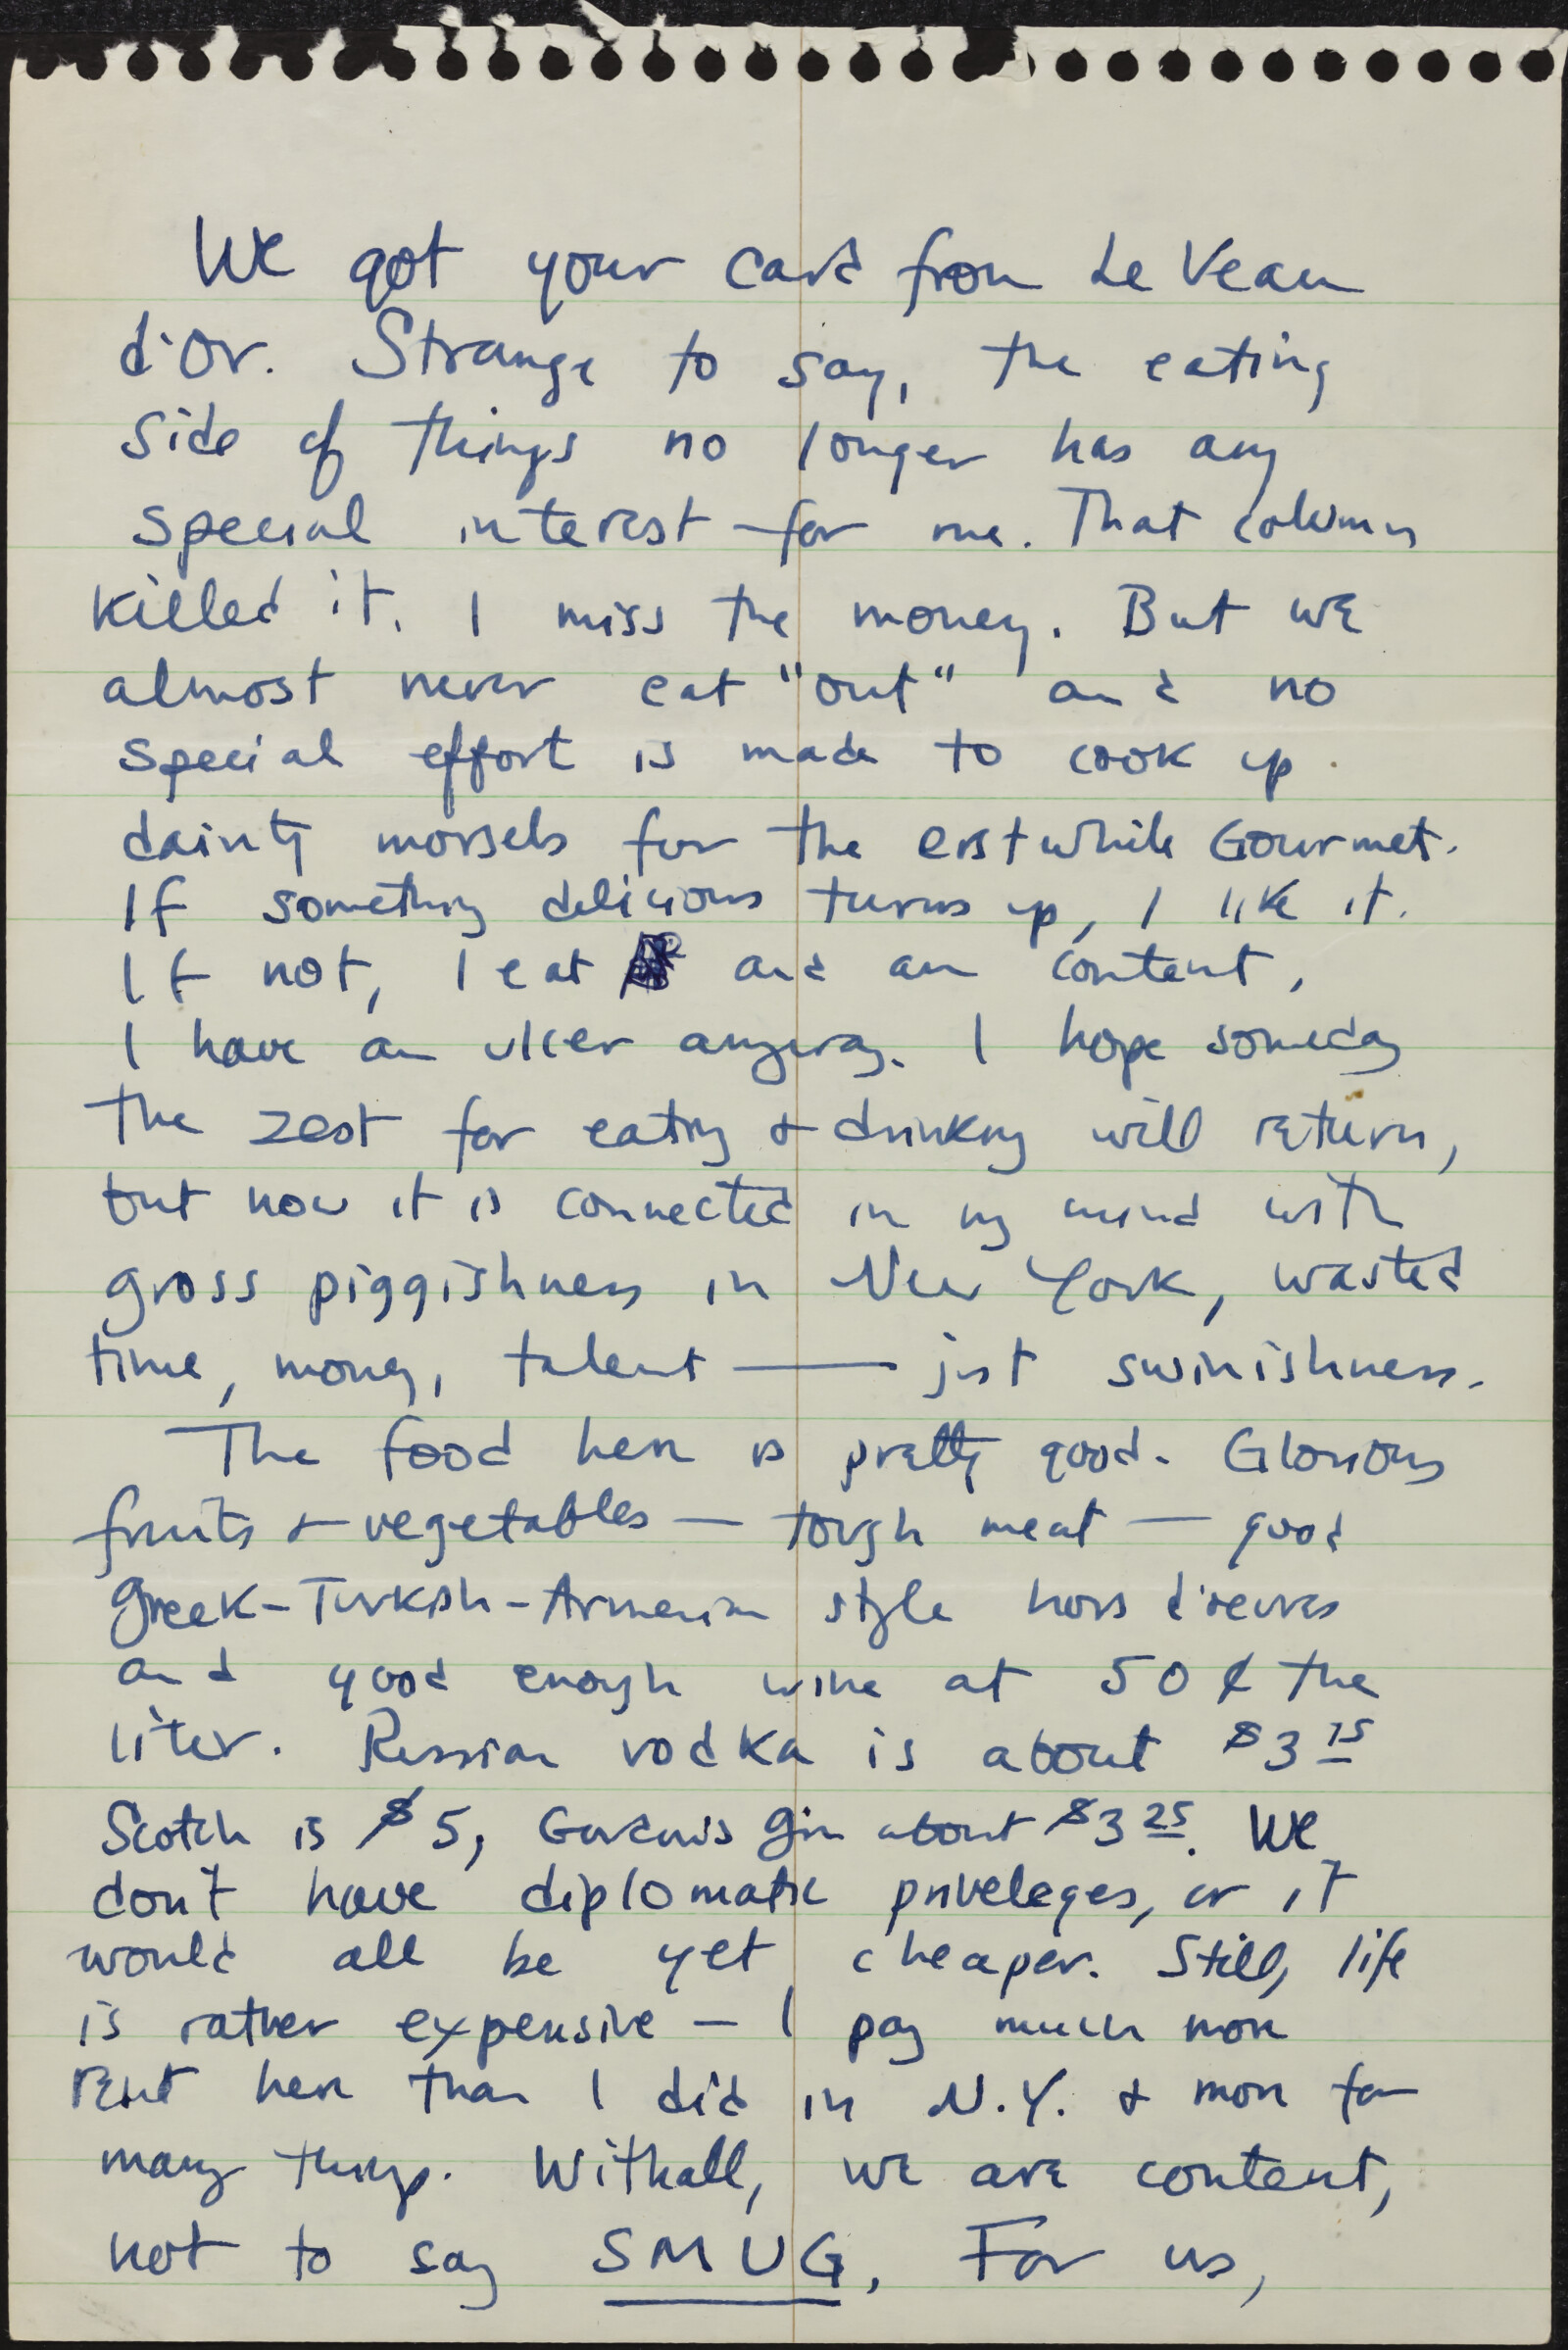 We got your card from Le Veau
d'Or. Strange to say, the eating
side of things no longer has any
special interest for me. That column
killed it. I miss the money. But we
almost never eat "out" and no
special effort is made to cook up
dainty morsels for the erstwhile Gourmet.
If something delicious turns up, I like it.
If not, I eat and am content.
I have an ulcer anyway. I hope someday
the zest for eating & drinking will return,
but now it is connected in my mind with
gross piggishness in New York, wasted
time, money, talent — just swinishness.
The food here is pretty good. Glorious
fruits & vegetables — tough meat — good
Greek-Turkish-Armenian style hors d'oeuvres
and good enough wine at 50¢ the
liter. Russian vodka is about $3
Scotch is $5, Gordon's gin about $3 25. We
don't have diplomatic priveleges, or it
would all be yet cheaper. Still, life
is rather expensive — I pay much more
rent here than I did in N.Y. & more for
many things. Withall, we are content,
not to say SMUG. For us,